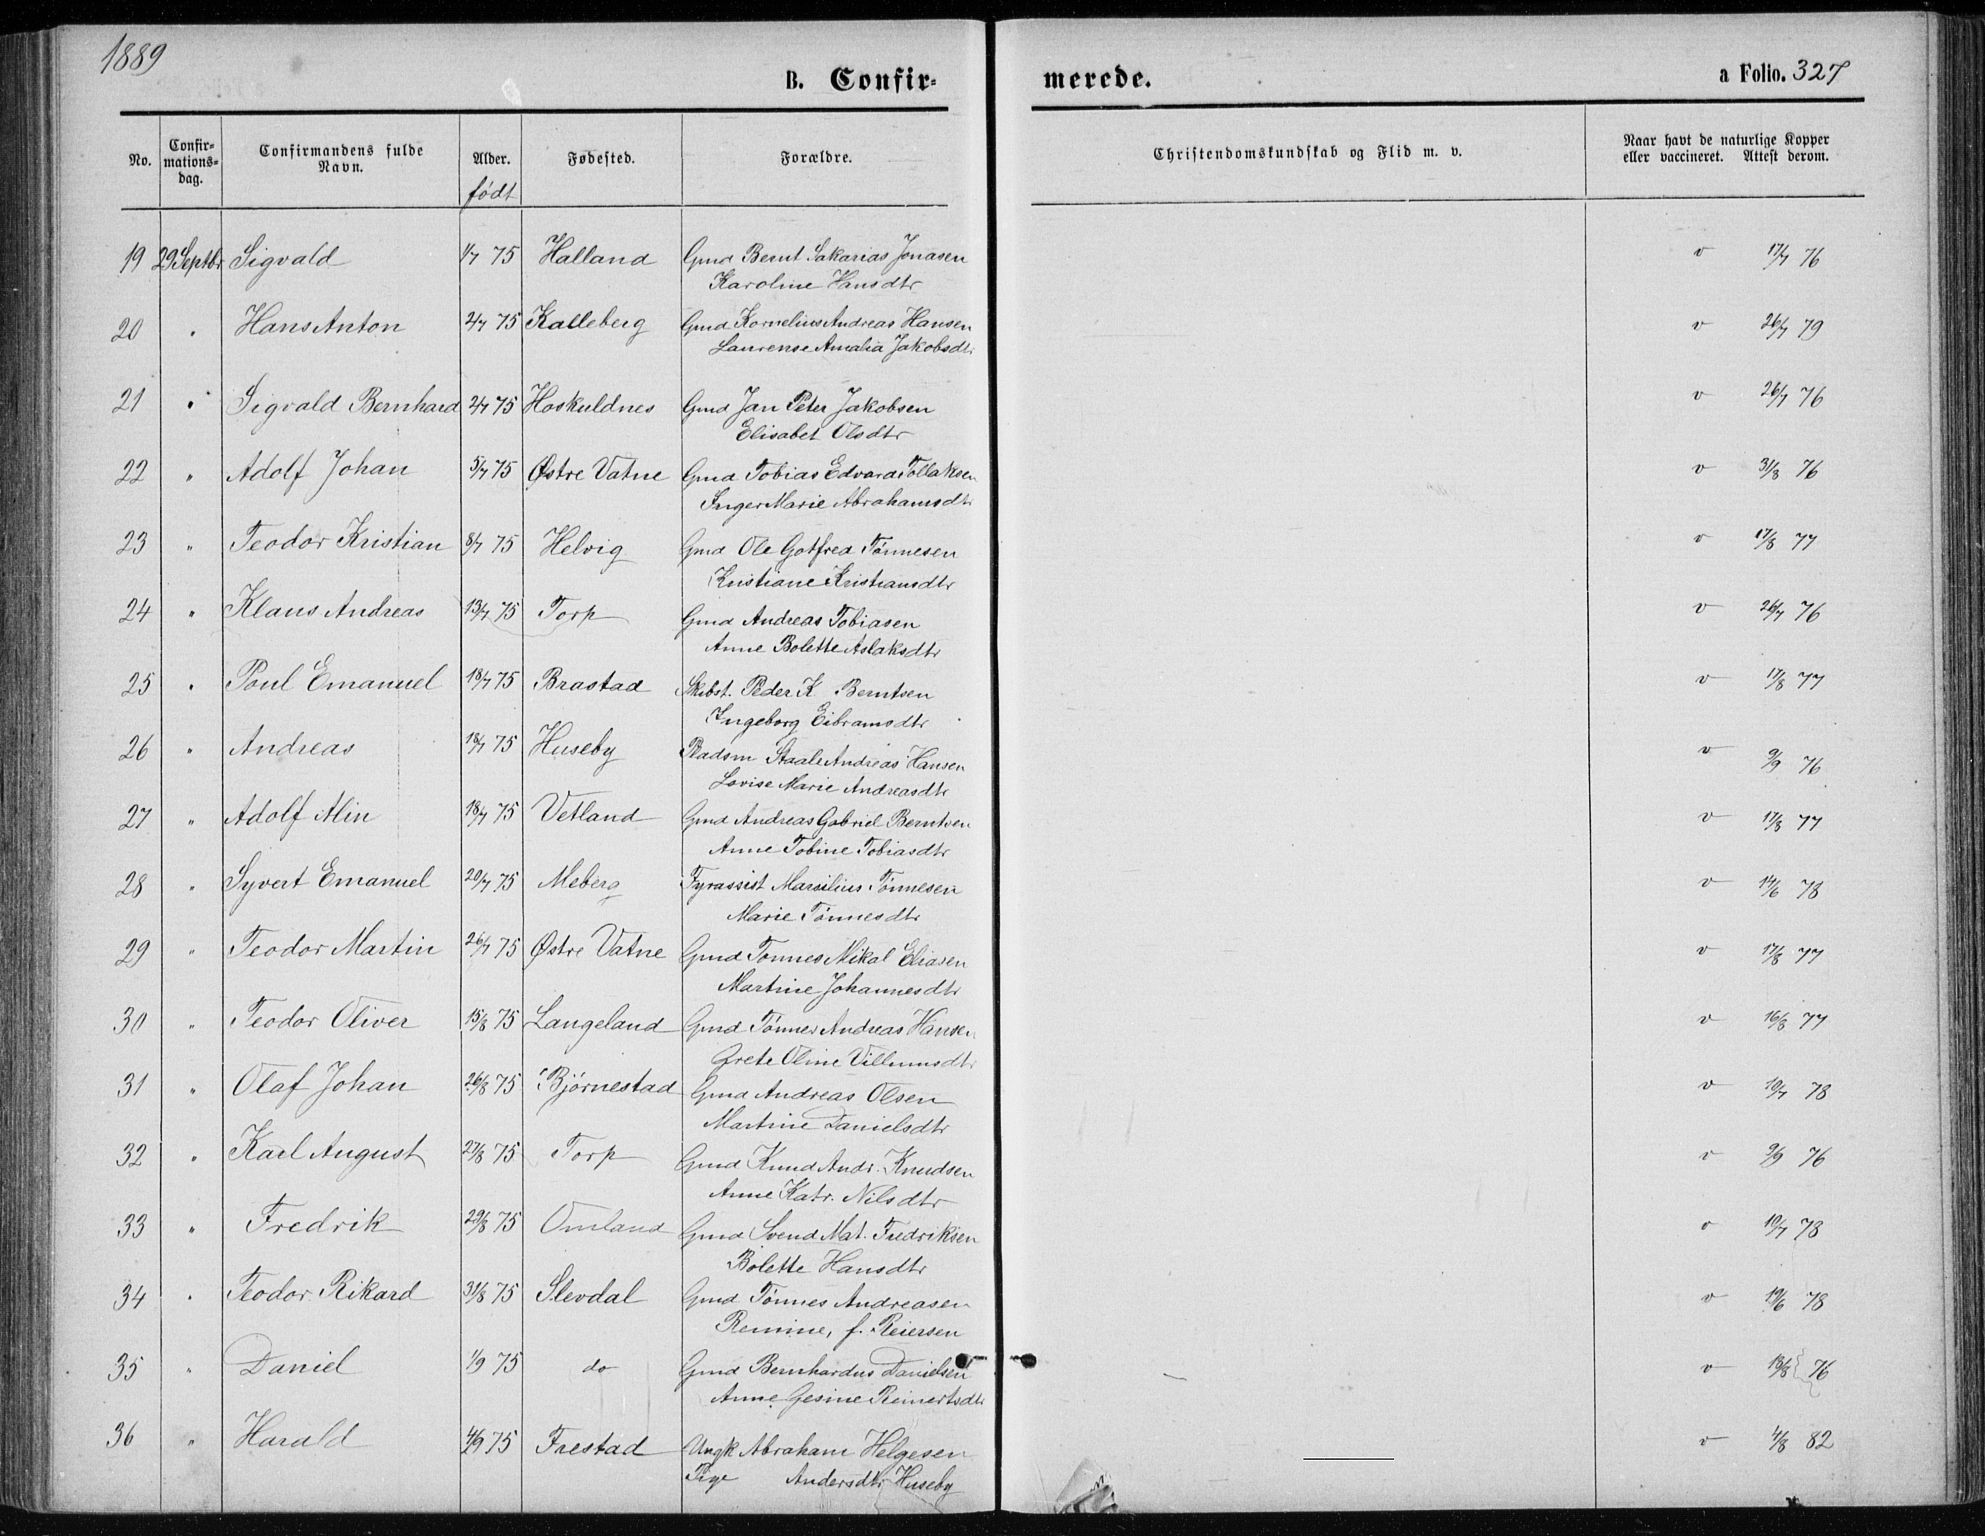 1889
B. Confir-
merede.
a Folio. 327
No. Confir-mations-dag. Confirmandens fulde Navn. Alder. født Fødested. Forældre. Christendomskundskab og Flid m. v. Naar havt de naturlige Kopper eller vaccineret. Attest derom.
19 29 Septbr Sigvald 1/7 75 Halland Gmd Bernt Sakarias Jonasen v 17/7 76
Karoline Hansdtr
20 " Hans Anton 2/7 75 Kalleberg Gmd Kornelius Andreas Hansen v 26/7 79
Laurense Amalia Jakobsdtr
21 " Sigvald Bernhard 2/7 75 Hoskuldnes Gmd Jan Peter Jakobsen v 26/7 76
Elisabet Olsdtr
22 " Adolf Johan 5/7 75 Østre Vatne Gmd Tobias Edvard Tollaksen v 31/8 76
Inger Marie Abrahamsdtr
23 " Teodor Kristian 8/7 75 Helvig Gmd Ole Gotfred Tønnesen v 17/8 77
Kristiane Kristiansdtr
24 " Klaus Andreas 13/7 75 Torp Gmd Andreas Tobiasen v 26/7 76
Anne Bolette Aslaksdtr
25 " Poul Emanuel 18/7 75 Brastad Skibst. Peder K Berntsen v 17/8 77
Ingeborg Eibramsdtr
26 " Andreas 18/7 75 Huseby Pladsm Staale Andreas Hansen v 9/9 76
Lovise Marie Andreasdtr
27 " Adolf Alin 18/7 75 Vetland Gmd Andreas Gabriel Berntsen v 17/8 77
Anne Tobine Tobiasdtr
28 " Syvert Emanuel 20/7 75 Meberg Fyrassist Marsilius Tønnesen v 14/6 78
Marie Tønnesdtr
29 " Teodor Martin 26/7 75 Østre Vatne Gmd Tønnes Mikal Eliasen v 17/8 77
Martine Johannesdtr
30 " Teodor Oliver 15/8 75 Langeland Gmd Tønnes Andreas Hansen v 16/8 77
Grete Oline Villumsdtr
31 " Olaf Johan 26/8 75 Bjørnestad Gmd Andreas Olsen v 10/7 78
Martine Danielsdtr
32 " Karl August 27/8 75 Torp Gmd Knud Andr. Knudsen v 9/9 76
Anne Katr. Nilsdtr
33 " Fredrik 29/8 75 Omland Gmd Svend Mat. Fredriksen v 10/7 78
Bolette Hansdtr
34 " Teodor Rikard 31/8 75 Slevdal Gmd Tønnes Andreasen v 19/6 78
Remine, f. Reiersen
35 " Daniel 1/9 75 do Gmd Bernhardus Danielsen v 18/8 76
Anne Gesine Reinertsdtr
36 " Harald 4/9 75 Frestad Ungk Abraham Helgesen v 4/8 82
Pige Andersdtr Huseby